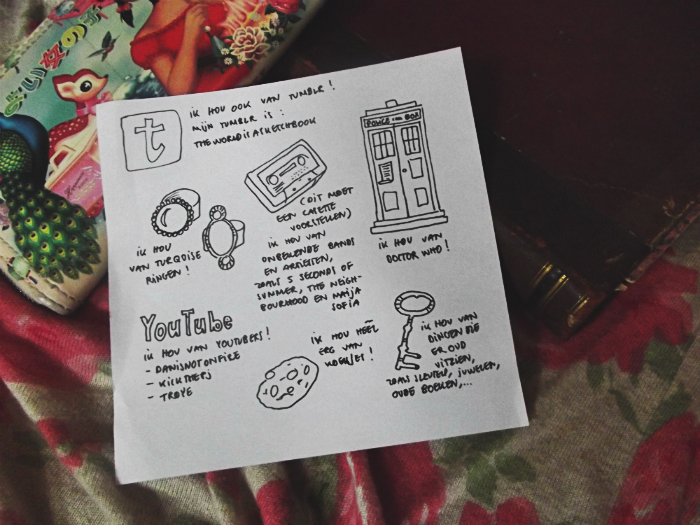 よい女の子
t
ik hou ook van tumblr!
mijn tumblr is:
theworldisasketchbook
POLICE BOX
(dit moet
een casette
voorstellen)
ik hou
van turqoise
ringen!
ik hou van
onbekende bands
en artiesten,
zoals 5 seconds of
summer, the neigh-
bourhood en maija
sofia
ik hou van
doctor who!
YouTube
ik hou van youtubers!
- danisnotonfire
- kickthepj
- troye
ik hou heel
erg van
koekjes!
ik hou van
dingen die
er oud
uitzien,
zoals sleutels, juwelen,
oude boeken,...